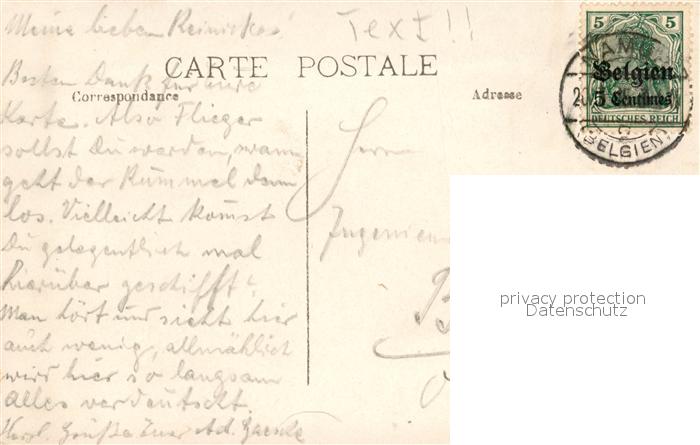 Meine lieben Reinickes!
Text!!
CARTE POSTALE
Correspondance
Adresse
5 5
Belgien
5 Centimes
DEUTSCHES REICH
NAMUR
(BELGIEN)
Besten Dank für eure
Karte. Also Flieger
sollst Du werden, wann
geht der Rummel denn
los. Vielleicht komst
Du gelegentlich mal
hierüber geschifft.
Man hört und sieht hier
auch wenig, allmählich
wird hier so langsam
alles verdeutscht.
Herzl. Grüße Euer Ad.
Herrn
Ingenieur
privacy protection
Datenschutz